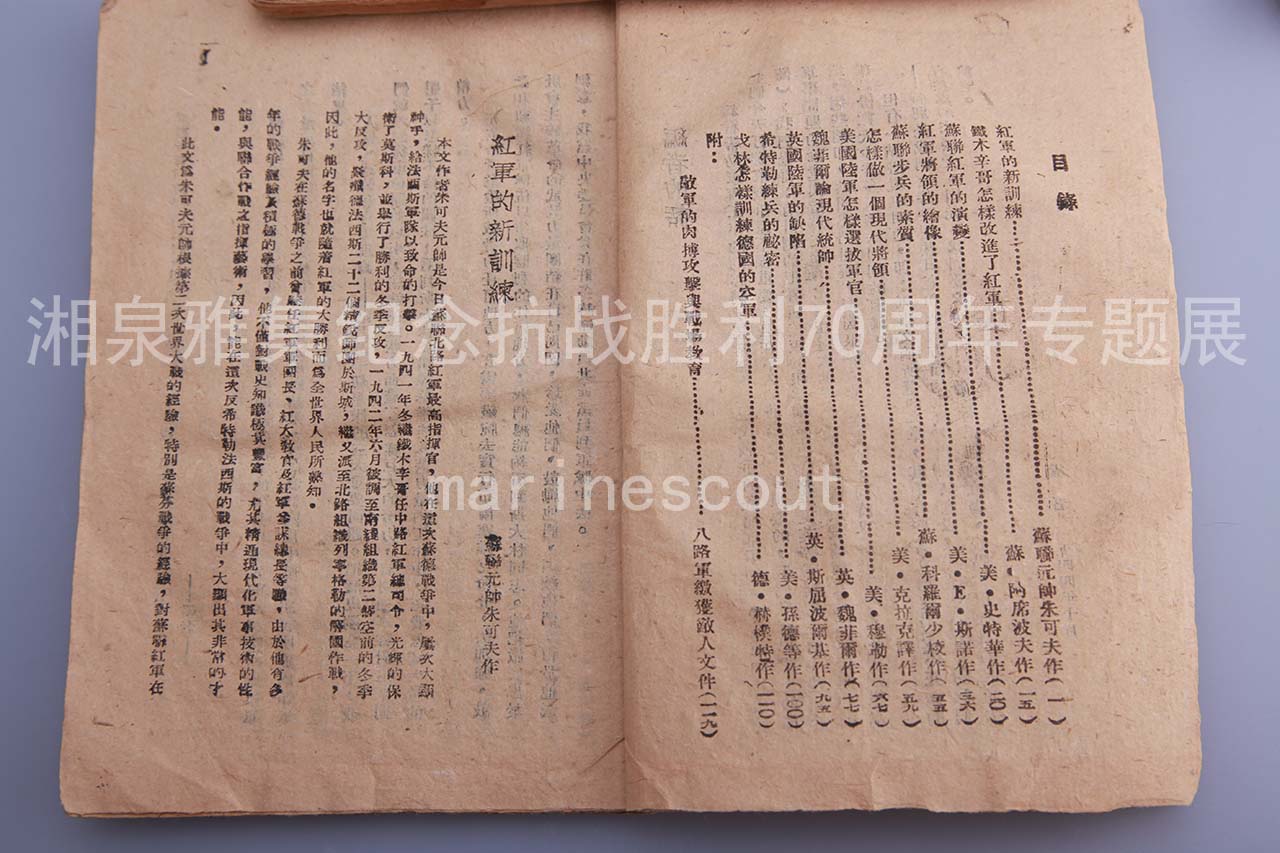 目錄
紅軍的新訓練 蘇聯元帥朱可夫作(一)
鐵木辛哥怎樣改進了紅軍 蘇·阿席波夫作(一五)
蘇聯紅軍的演變 美·史特華作(二〇)
紅軍將領的繪像 美·E·斯諾作(三六)
蘇聯步兵的素質 蘇·科羅爾少校作(五五)
怎樣做一個現代將領 美·克拉克譯作(五九)
美國陸軍怎樣選拔軍官 美·穆勒作(六七)
魏菲爾論現代統帥 英·魏菲爾作(七七)
英國陸軍的缺陷 英·斯屈波爾基作(九五)
希特勒練兵的祕密 美·孫德等作(一〇〇)
戈林怎樣訓練德國的空軍 德·赫樸特作(一一〇)
附:
敵軍的肉搏攻擊與戰場教育 八路軍繳獲敵人文件(一一九)
1
紅軍的新訓練
蘇聯元帥朱可夫作
本文作者朱可夫元帥是今日蘇聯北路紅軍最高指揮官,他在這次蘇德戰爭中,屢次大顯
神乎,給法西斯軍隊以致命的打擊。一九四一年冬繼鐵木辛哥任中路紅軍總司令,光輝的保
衛了莫斯科,並舉行了勝利的冬季反攻,一九四二年六月被調至南綫組織第二際空前的冬季
大反攻,聚殲德法西斯二十二個精銳師團於斯城,繼又派至北路組織列寧格勒的解圍作戰,
因此,他的名字也就隨着紅軍的大勝利而爲全世界人民所熟知。
朱可夫在蘇德戰爭之前曾歷任紅軍軍團長、紅大教官及紅軍參謀總長等職,由於他有多
年的戰爭經驗及積極的學習,他不僅對戰史知識極其豐富,尤其精通現代化軍事技術的性
能,與聯合作戰之指揮藝術,因此,他在這次反希特勒法西斯的戰爭中,大顯出其非常的才
能。
此文爲朱可夫元帥根據第二次世界大戰的經驗,特別是蘇芬戰爭的經驗,對蘇聯紅軍在
湘泉雅集纪念抗战胜利70周年专题展
marinescout